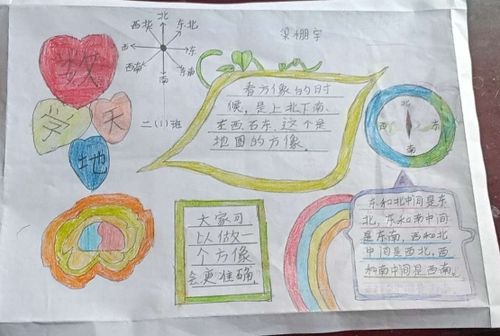 北
西北
东北
西
东
西南
东南
南
梁栩宇
数
学
天
地
二(1)班
看方像的时
候,是上北下南、
左西右东,这个是
地图的方像。
北
西
东
南
大家可
以做一
个方像
会更准确。
东和北中间是东
北,东和南中间
是东南,西和北
中间是西北,西
和南中间是西南。